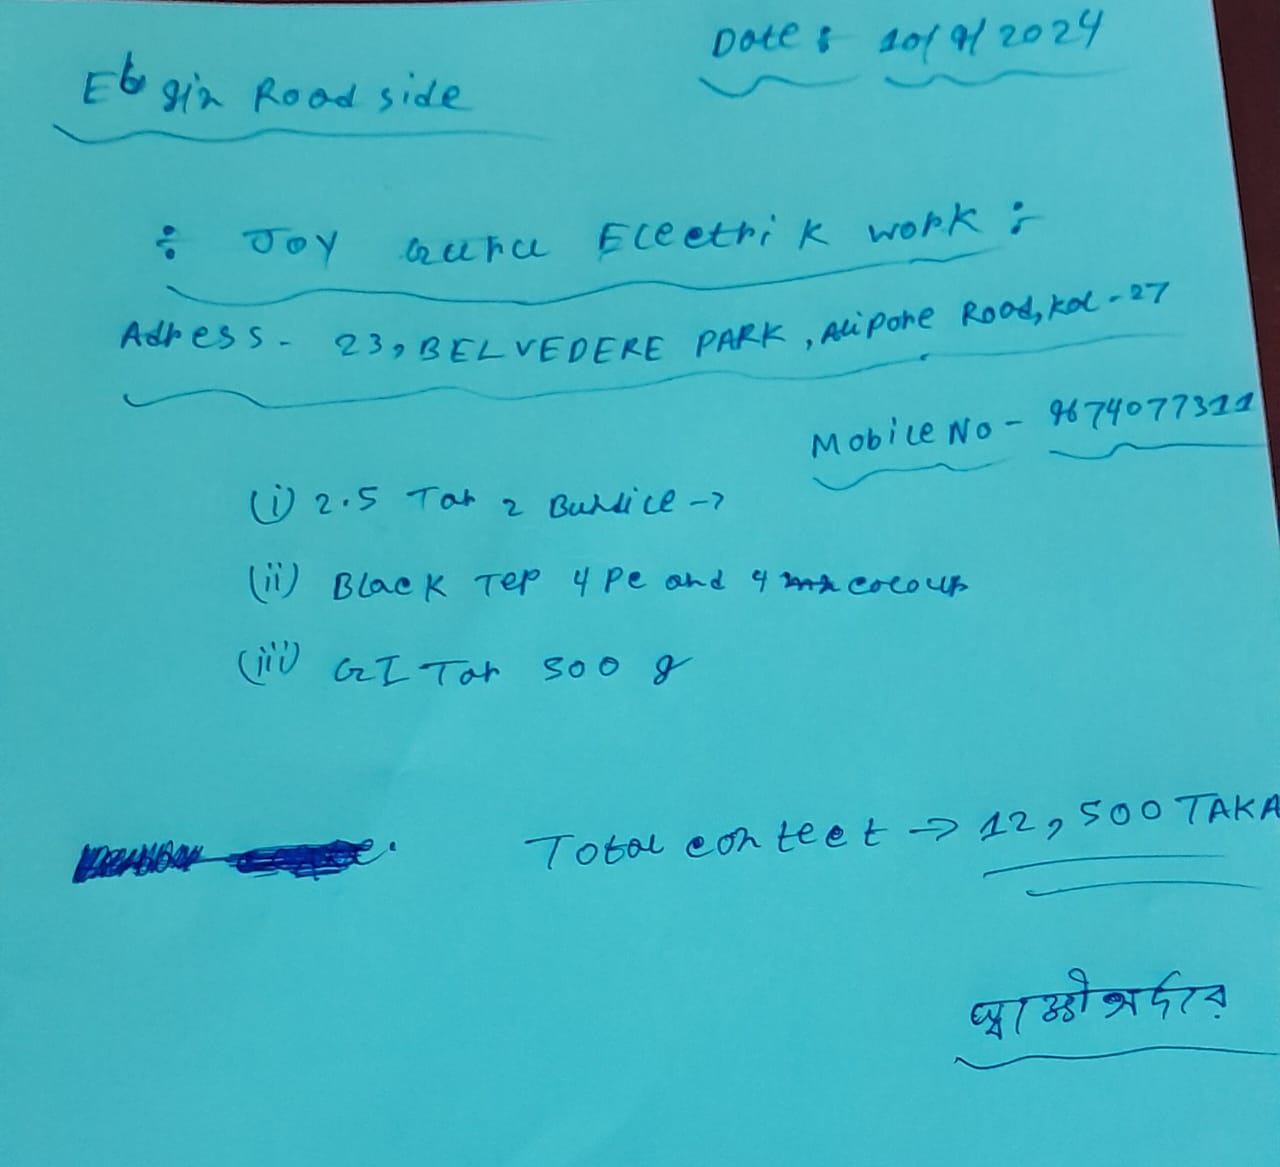 Date : 10/9/2024
Elgin Road side
: JOY Guru Electrik work :
Adress - 23, BELVEDERE PARK, Alipore Road, Kol - 27
Mobile No - 9674077311
(i) 2.5 Tar 2 Bundice →
(ii) Black Tep 4 Pc and 4 colour
(iii) GI Tar 500 g
Total contect → 12,500 TAKA
সর্দার